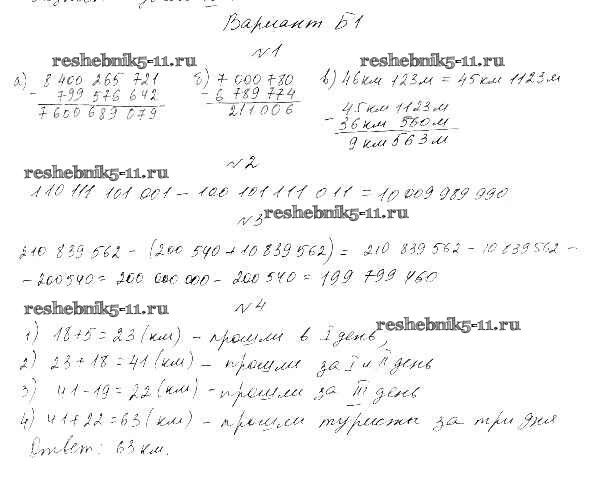 Вариант Б1
№1
reshebnik5-11.ru reshebnik5-11.ru
а) 8 400 265 721 б) 7 000 780 в) 46км 123м = 45км 1123м
- 799 576 642 - 6 789 774 45км 1123м
7600 689 079 211 006 - 36км 560м
9км 563м
№2
reshebnik5-11.ru
110 111 101 001 - 100 101 111 011 = 10 009 989 990
№3 reshebnik5-11.ru
210 839 562 - (200 540 + 10 839 562) = 210 839 562 - 10 839 562 -
- 200 540 = 200 000 000 - 200 540 = 199 799 460
reshebnik5-11.ru №4
1) 18+5=23(км) - прошли в I день, reshebnik5-11.ru
2) 23+18=41(км) - прошли за I и II день
3) 41-19=22(км) - прошли за III день
4) 41+22=63(км) - прошли туристы за три дня
Ответ: 63км.